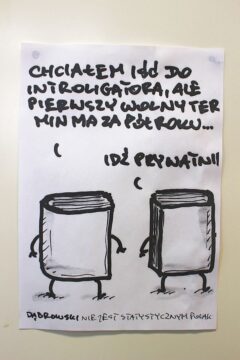 CHCIAŁEM IŚĆ DO
INTROLIGATORA, ALE
PIERWSZY WOLNY TER
MIN MA ZA PÓŁ ROKU...
IDŹ PRYWATNIE
DĄBROWSKI NIE JEST STATYSTYCZNYM POLAK